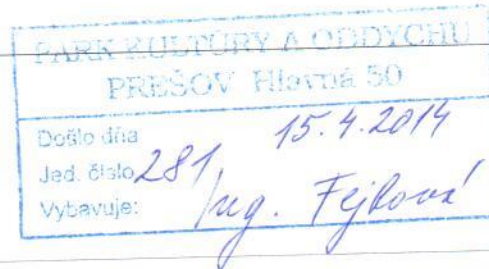 PARK KULTÚRY A ODDYCHU
PREŠOV Hlavná 50
Došlo dňa 15.4.2014
Jed. číslo 281
Vybavuje: Ing. Fejková